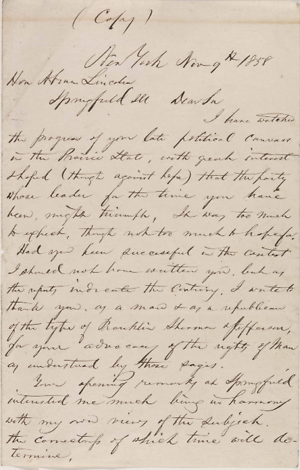 (Copy)
New York Nov 9th 1858
Hon Abram Lincoln
Springfield Ill Dear Sir
I have watched
the progress of your late political canvass
in the Prairie State, with great interest
& hoped (though against hope) that the party
whose leader for the time you have
been, might triumph. It was too much
to expect, though not too much to hope for.
Had you been successful in the contest
I should not have written you, but as
the indicate the contrary, I write to
thank you, as a man & as a republican
of the type of Franklin Sherman & Jefferson,
for your advocacy of the rights of Man
as understood by those sages.
Your opening remarks at Springfield,
interested me much being in harmony
with my own views of the subject.
the correctness of which time will de-
termine.